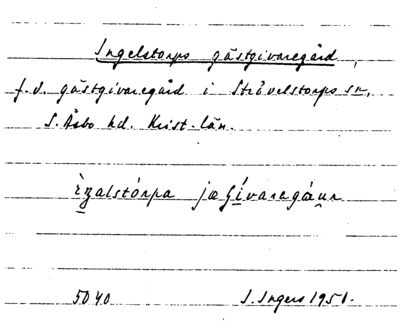 Ingelstorps gästgivaregård,
f.d. gästgivaregård i Strövelstorps sn,
S. Åsbo hd. Krist. län.
ɪ̀ŋalstórpa jæʃívaragáʊr
5040 I. Ingers 1951.